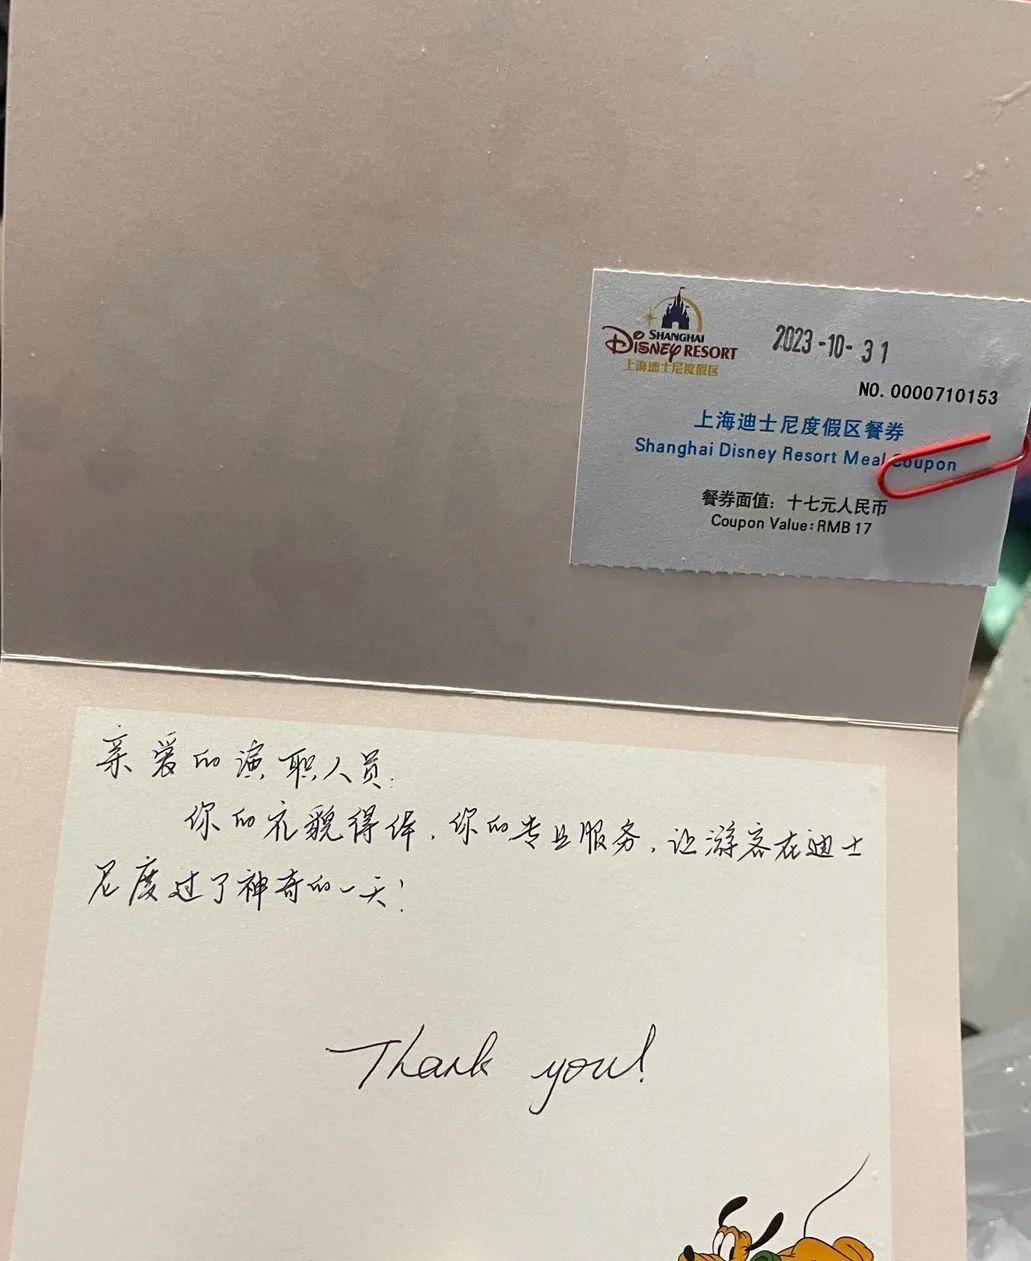 SHANGHAI
DISNEY RESORT
上海迪士尼度假区
2023-10-31
NO. 0000710153
上海迪士尼度假区餐券
Shanghai Disney Resort Meal Coupon
餐券面值：十七元人民币
Coupon Value: RMB 17
亲爱的演职人员：
你的衣貌得体，你的专业服务，让游客在迪士
尼度过了神奇的一天！
Thank you!